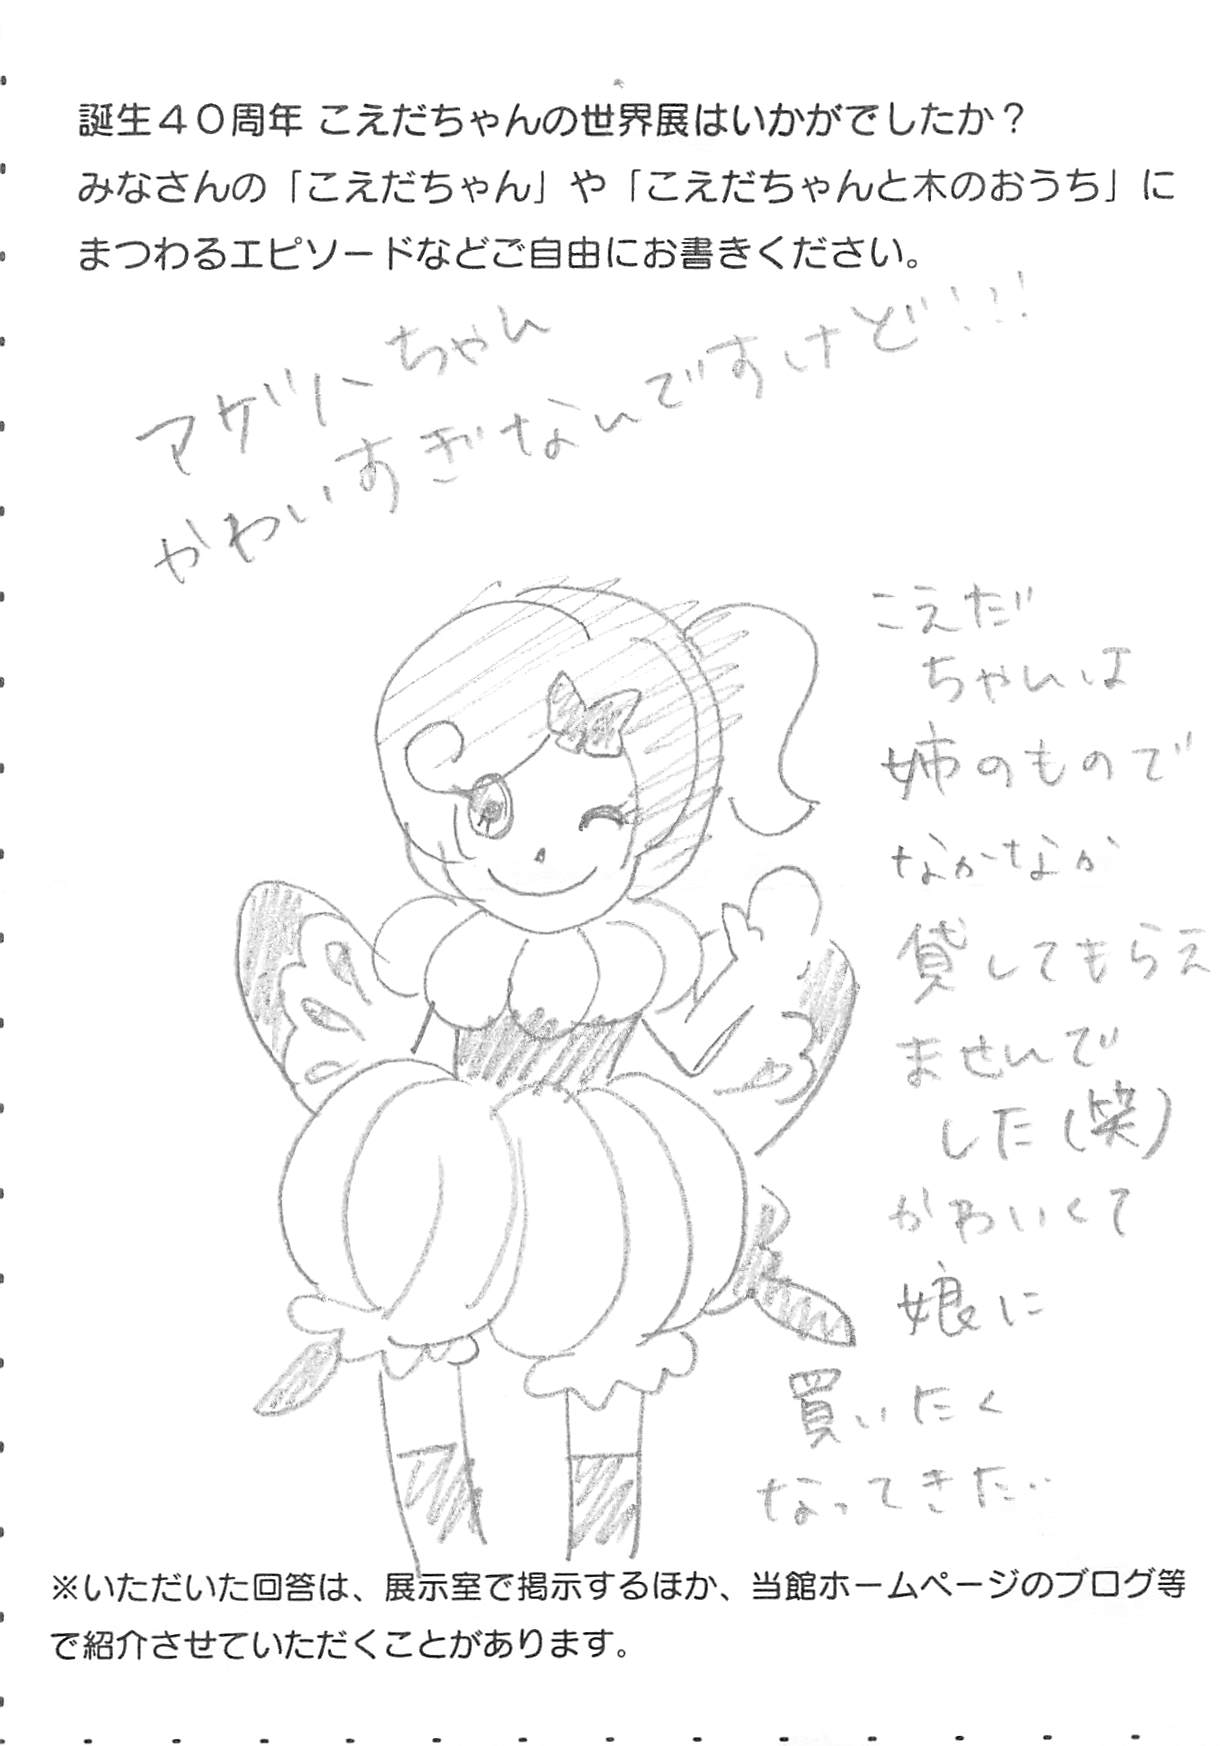 誕生４０周年 こえだちゃんの世界展はいかがでしたか？
みなさんの「こえだちゃん」や「こえだちゃんと木のおうち」に
まつわるエピソードなどご自由にお書きください。
アゲハちゃん
かわいすぎなんですけど!!!
こえだ
ちゃんは
姉のもので
なかなか
貸してもらえ
ませんで
した(笑)
かわいくて
娘に
買いたく
なってきた‥
※いただいた回答は、展示室で掲示するほか、当館ホームページのブログ等
で紹介させていただくことがあります。